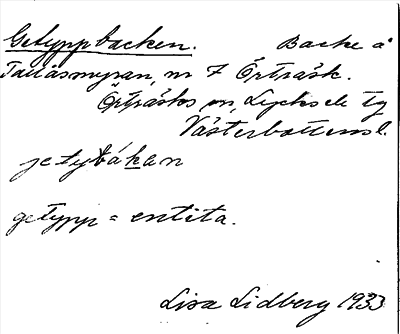 Getyppbacken. Backe å
Tallåsmyran, nr 7 Örträsk.
Örträsks sn, Lycksele tg
Västerbottens l.
jetybákan
getypp = entita.
Lisa Lidberg 1933